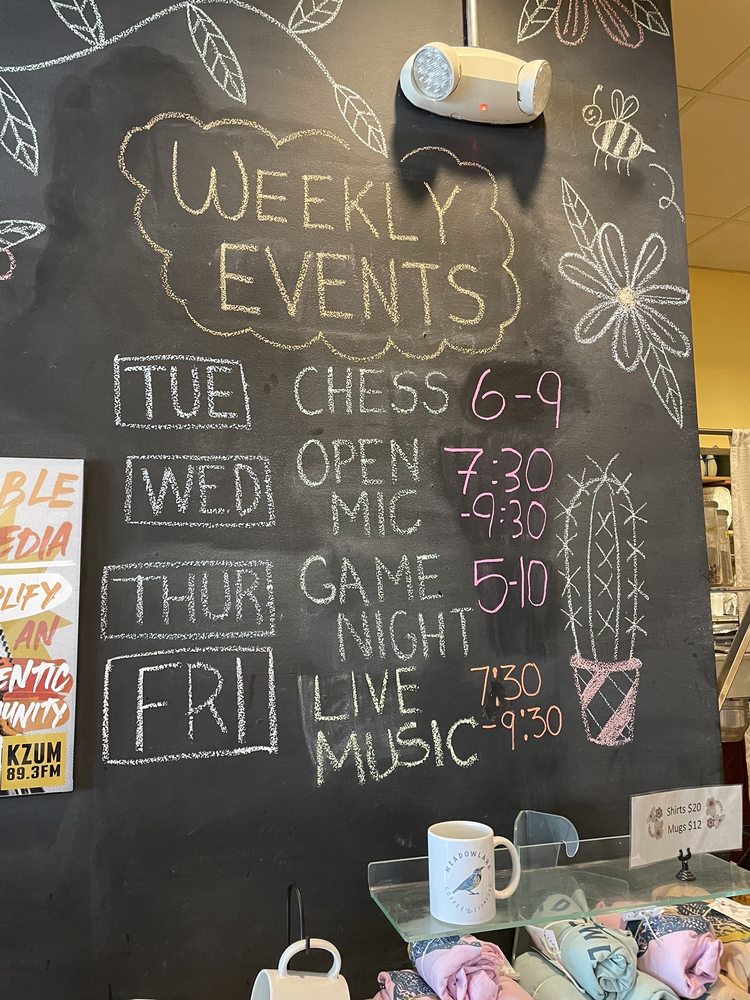 WEEKLY
EVENTS
TUE CHESS 6-9
WED OPEN MIC 7:30 -9:30
THUR GAME NIGHT 5-10
FRI LIVE MUSIC 7:30 -9:30
BLE
EDIA
PLIFY
AN
ENTIC
UNITY
KZUM
89.3FM
Shirts $20
Mugs $12
MEADOWLARK
COFFEE &